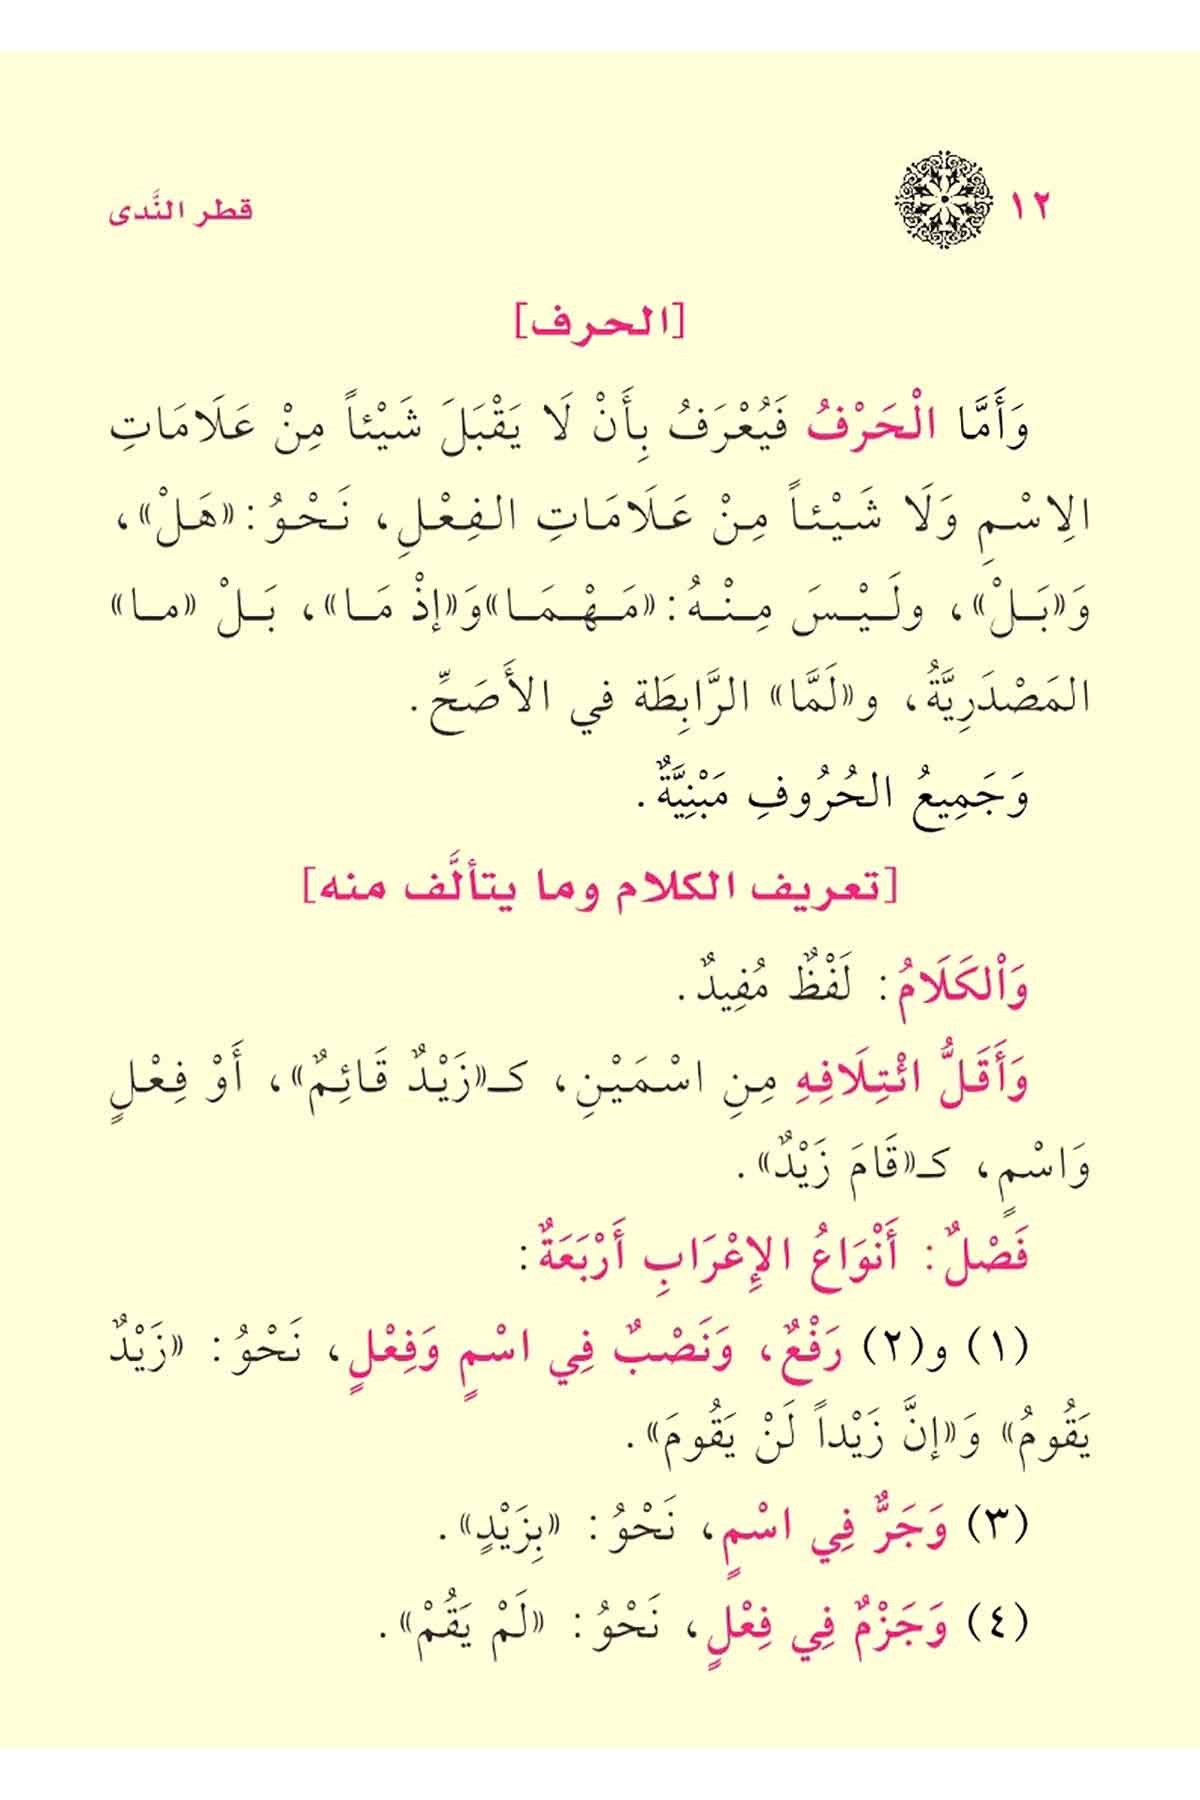 ١٢ قطر النَّدى
[الحرف]
وَأَمَّا الْحَرْفُ فَيُعْرَفُ بِأَنْ لَا يَقْبَلَ شَيْئاً مِنْ عَلَامَاتِ
الِاسْمِ وَلَا شَيْئاً مِنْ عَلَامَاتِ الفِعْلِ، نَحْوُ: «هَلْ»،
وَ«بَلْ»، ولَيْسَ مِنْهُ: «مَهْمَا» وَ«إذْ مَا»، بَلْ «ما»
المَصْدَرِيَّةُ، و«لَمَّا» الرَّابِطَة في الأَصَحِّ.
وَجَمِيعُ الحُرُوفِ مَبْنِيَّةٌ.
[تعريف الكلام وما يتألَّف منه]
وَاْلكَلَامُ: لَفْظٌ مُفِيدٌ.
وَأَقَلُّ ائْتِلَافِهِ مِنِ اسْمَيْنِ، كـ«زَيْدٌ قَائِمٌ»، أَوْ فِعْلٍ
وَاسْمٍ، كـ«قَامَ زَيْدٌ».
فَصْلٌ: أَنْوَاعُ الإِعْرَابِ أَرْبَعَةٌ:
(١) و(٢) رَفْعٌ، وَنَصْبٌ فِي اسْمٍ وَفِعْلٍ، نَحْوُ: «زَيْدٌ
يَقُومُ» وَ«إنَّ زَيْداً لَنْ يَقُومَ».
(٣) وَجَرٌّ فِي اسْمٍ، نَحْوُ: «بِزَيْدٍ».
(٤) وَجَزْمٌ فِي فِعْلٍ، نَحْوُ: «لَمْ يَقُمْ».